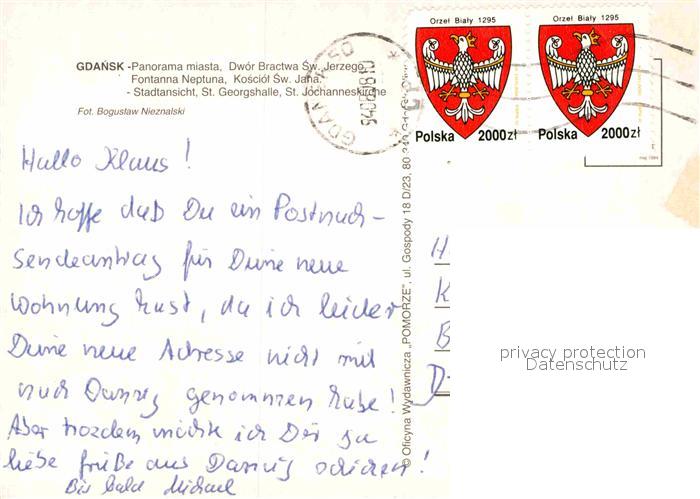 GDAŃSK - Panorama miasta, Dwór Bractwa Św. Jerzego,
Fontanna Neptuna, Kościół Św. Jana.
- Stadtansicht, St. Georgshalle, St. Jochanneskirche
Fot. Bogusław Nieznalski
Orzeł Biały 1295
Polska 2000 zł
Orzeł Biały 1295
Polska 2000 zł
Hallo Klaus!
Ich hoffe daß Du ein Postnach-
sendeantrag für Deine neue
Wohnung hast, da ich leider
Deine neue Adresse nicht mit
nach Danzig genommen habe!
Aber trozdem möchte ich Dir ja
liebe Grüße aus Danzig schicken!
Bis bald Michael
© Oficyna Wydawnicza „POMORZE”, ul. Gospody 18 D/23, 80-340
H
K
B
D-
privacy protection
Datenschutz